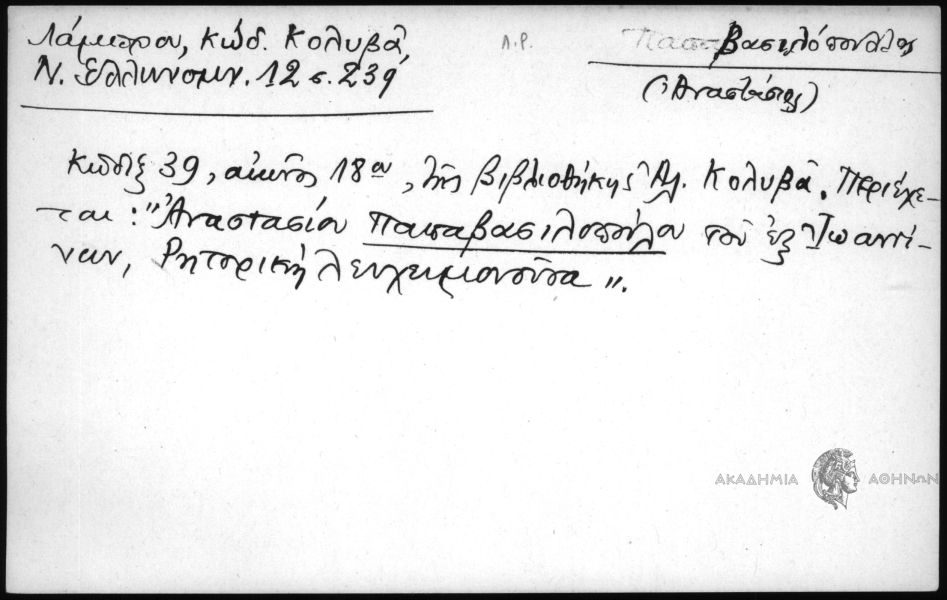 Λάμπρου, Κώδ. Κολυβᾶ,
Ν. Ἑλληνομν. 12 σ. 239
Λ.Ρ.
Παπαβασιλόπουλος
(Ἀναστάσιος)
Κῶδιξ 39, αἰῶνος 18ου, τῆς βιβλιοθήκης Ἀλ. Κολυβᾶ. Περιέχε-
ται: "Ἀναστασίου Παπαβασιλοπούλου τοῦ ἐξ Ἰωαννί-
νων, Ρητορική λευχειμονοῦσα".
ΑΚΑΔΗΜΙΑ ΑΘΗΝΩΝ